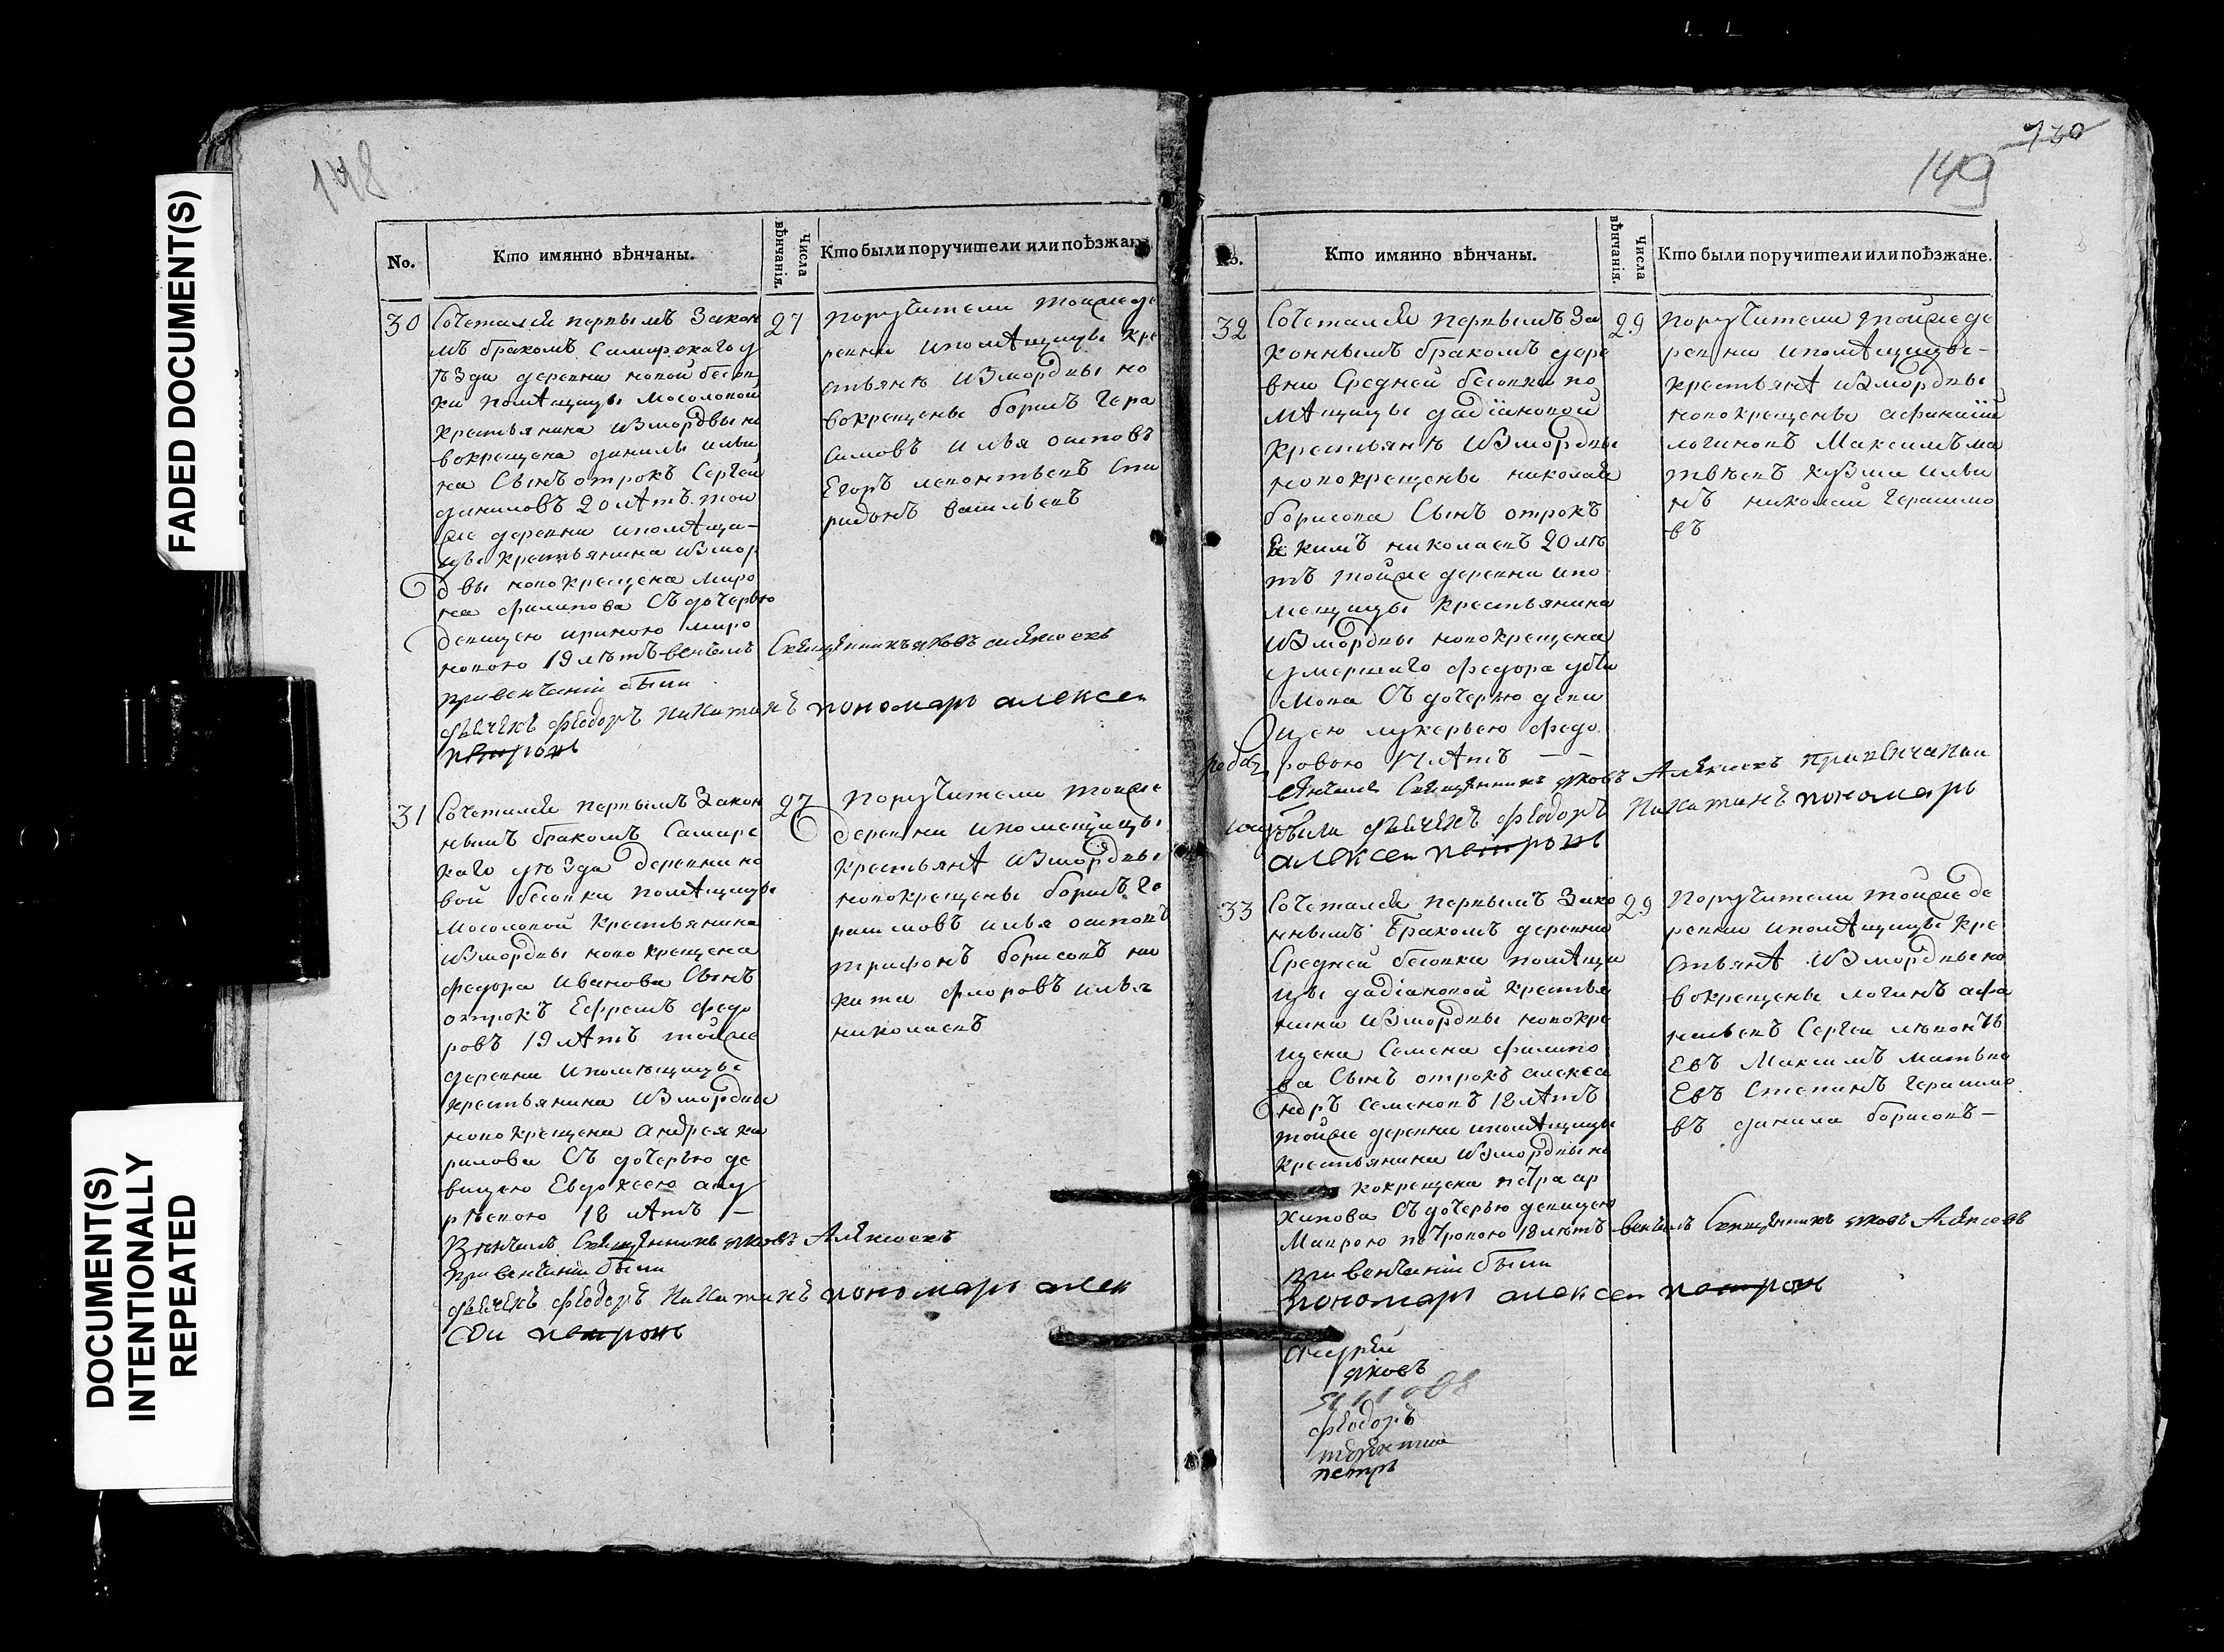 FADED DOCUMENT(S)
DOCUMENT(S)
INTENTIONALLY
REPEATED
148
No.
Кто имянно вѣнчаны.
Числа
вѣнчанія.
Кто были поручители или поѣзжан
30
Сочетался первымъ Закон
мъ бракомъ Самарскаго у
ѣзда деревни новой бесов
ки помѣщицы Мосоловой
крестьянина измордвы но
вокрещена данилы ильи
на Сынъ отрокъ Сергей
даниловъ 20 лѣтъ той
же деревни ипомѣщи-
цы крестьянина измор
двы новокрещена миро
на филипова Съ дочерью
девицею ириною миро
новою 19 лѣтъ венчалъ Священникъ яковъ алексеевъ
привенчаніи были
дьячекъ феодоръ никитинъ пономарь алексеи
петровъ
27
поручители тойже де
ревни ипомѣщицы кре
стьянѣ измордвы но
вокрещены борисъ Гера
симовъ илья осиповъ
Егоръ леонтьевъ Спи
ридонъ васильевъ
31
Сочетался первымъ Закон
нымъ бракомъ Самарс
каго уѣзда деревни но
вой бесовки помѣщицы
Мосоловой крестьянина
измордвы новокрещена
федора иванова Сынъ
отрокъ Ефремъ федо
ровъ 19 лѣтъ тойже
деревни ипомѣщицы
крестьянина измордвы
новокрещена андрея ка
рилова Съ дочерью де
вицею Евдокеею анд
рѣевою 18 лѣтъ —
Вѣнчалъ Священникъ яковъ Алексеевъ
привенчаніи были
дьячекъ феодоръ никитинъ пономарь алек
сеи петровъ
27
поручители тойже
деревни ипомещицы
крестьянѣ измордвы
новокрещены борисъ Ге
расимовъ илья осиповъ
трифонъ борисовъ ни
кита флоровъ илья
николаевъ
130
149
No.
Кто имянно вѣнчаны.
Числа
вѣнчанія.
Кто были поручители или поѣзжане.
32
Сочетался первымъ За
коннымъ бракомъ дере
вни Средней бесовки по
мѣщицы дадіановой
крестьянѣ измордвы
новокрещены николая
борисова Сынъ отрокъ
Екимъ николаевъ 20 лѣ
тъ тойже деревни ипо
мещицы крестьянина
измордвы новокрещена
умершаго федора
Съ дочерью деви
цею лукерьею федо
ровою 17 лѣтъ — —
венчалъ Священникъ яковъ Алексеевъ привенчании
были дьячекъ феодоръ никитинъ пономарь
алексеи петровъ
29
поручители тойже де
ревни ипомѣщицы-
крестьянѣ измордвы
новокрещены афанасий
логиновъ Максимъ ма
твѣевъ кузма ильи
нъ николай Герасимо
въ
33
Сочетался первымъ Зако
ннымъ бракомъ деревни
Средней бесовки помѣщи
цы дадіановой крестья
нина измордвы новокре
щена Семена филипо
ва Сынъ отрокъ алекса
ндръ семеновъ 18 лѣтъ
тойже деревни ипомѣщицы
крестьянина измордвы но
вокрещена петра ар
хипова Съ дочерью девицею
Маврою петровою 18 лѣтъ венчалъ Священникъ яковъ Алексеевъ
при венчаніи были
пономарь алексеи петровъ
29
Поручители тойже де
ревни ипомѣщицы кре
стьянѣ измордвы но
вокрещены логинъ афа
насьевъ Сергеи лѣвонтъ
Евъ Максимъ матвѣ
Евъ Степанъ герасимо
въ данила борисовъ—
яковъ
феодоръ
петръ